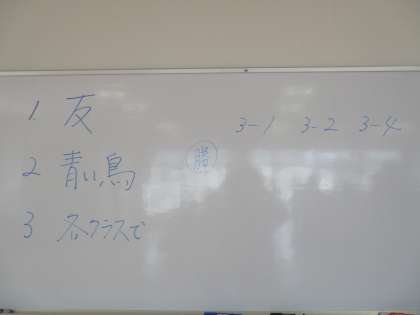 1 友
2 青い鳥
3 各クラスで
勝
3-1 3-2 3-4